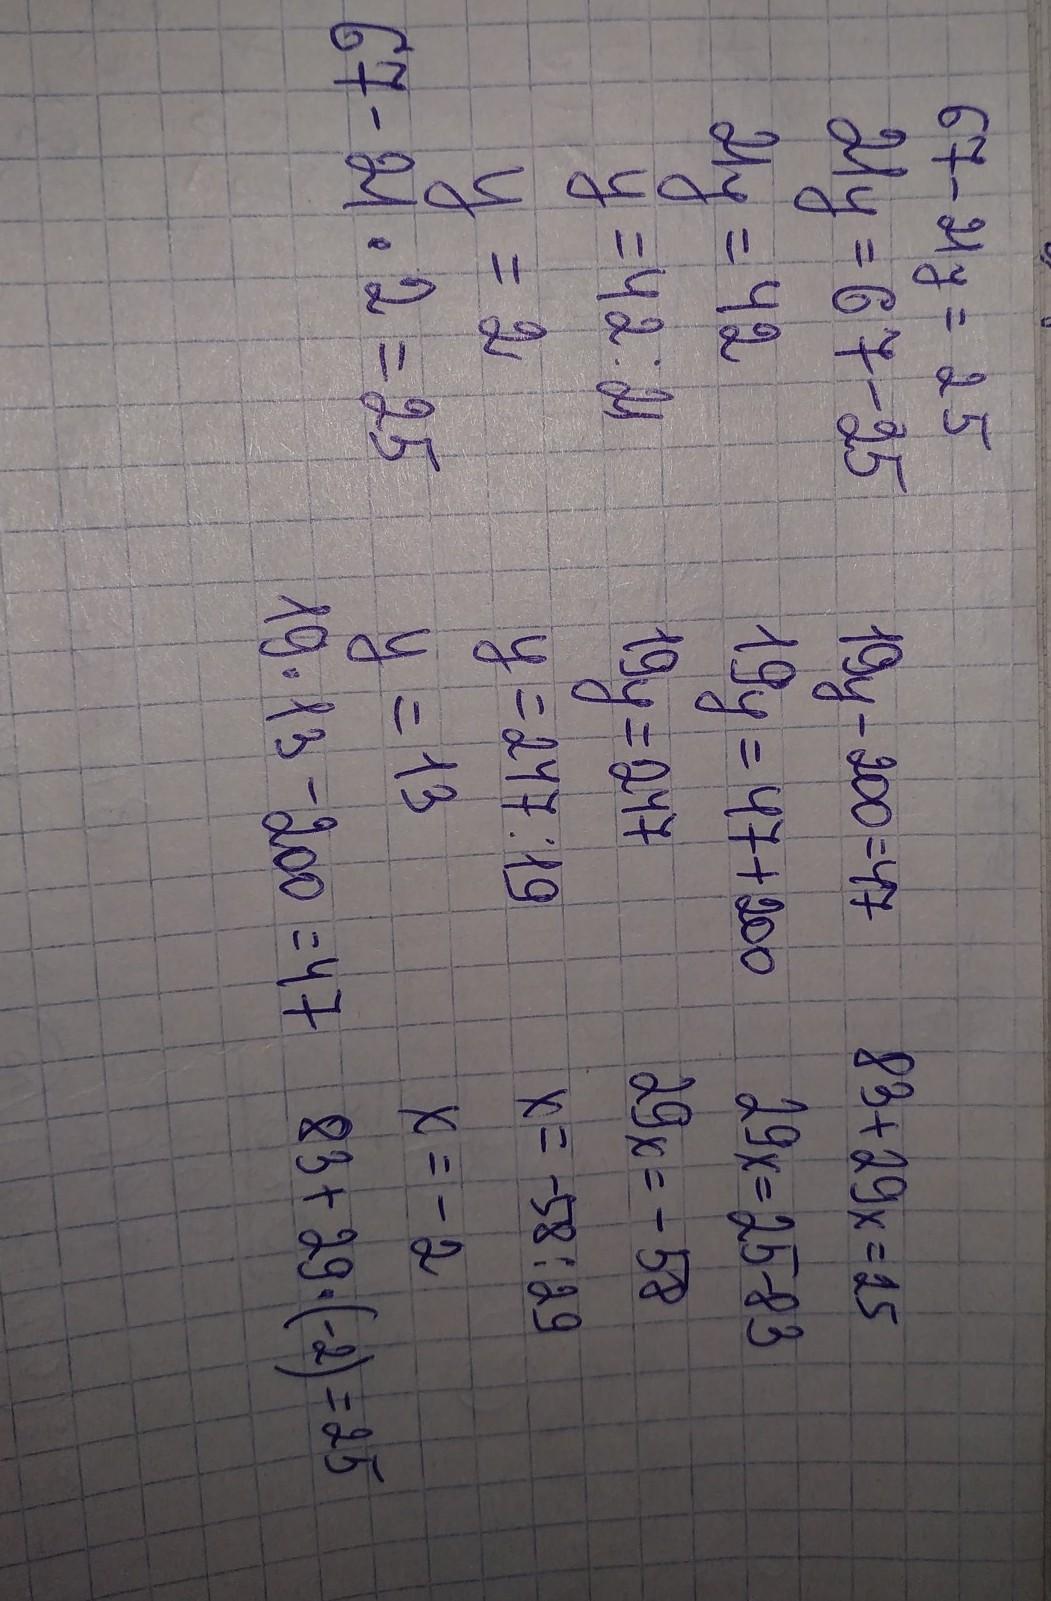 67-21y=25
21y=67-25
21y=42
y=42:21
y=2
67-21·2=25
19y-200=47
19y=47+200
19y=247
y=247:19
y=13
19·13-200=47
83+29x=25
29x=25-83
29x=-58
x=-58:29
x=-2
83+29·(-2)=25